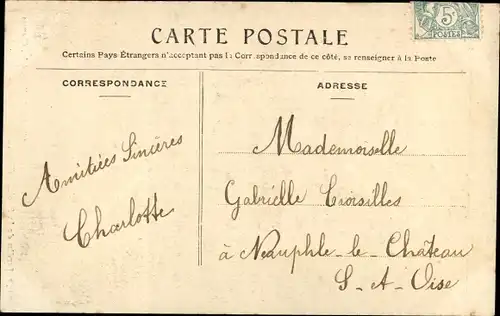 CARTE POSTALE
Certains Pays-Étrangers n'acceptant pas la Correspondance de ce côté, se renseigner à la Poste
CORRESPONDANCE
ADRESSE
Amitiées Sincères
Charlotte
Mademoiselle
Gabrielle Croisilles
à Neauphle-le-Château
S-et-Oise
5c
POSTES